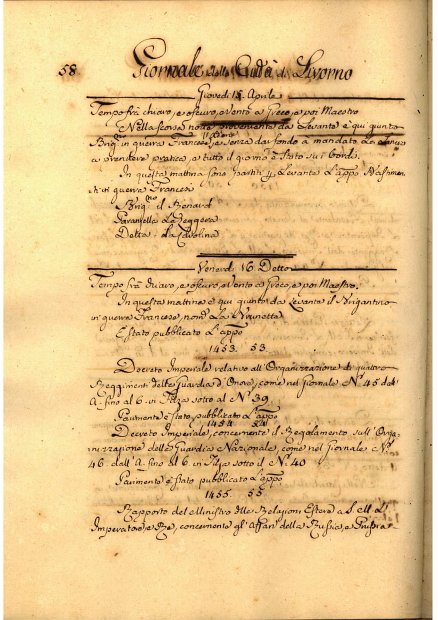 58. Giornale della Città di Livorno
Giovedì 15 Aprile
Tempo frà chiaro, e oscuro, e Vento a Greco, e poi Maestro
Nella scorsa notte proveniente da Levante è qui giunto
Brig.no in guerra Francese, e senza dar fondo a mandato La
a prendere pratica, e tutto il giorno è stato sui bordi.
In questa mattina sono partiti p. Levante L'app.o
ti in guerra Francesi
Brig.no il Renard
Paranzella La Leggera
Detta La Carolina
Venerdì 16. Detto
Tempo frà chiaro, e oscuro, e Vento a Greco, e poi Maestro.
In questa mattina è qui giunto da Levante il Brigantino
in guerra Francese, nom.o La
È stato pubblicato L'app.o
1453. 53.
Decreto Imperiale relativo all'Organizzazione di quattro
Reggimenti delle Guardie d'Onore, come nel Giornale N.o 45 dall'
A. fino al 6. in filza sotto al N.o 39
Parimente è stato pubblicato L'app.o
1454. 54
Decreto Imperiale, concernente il Regolamento sull'Orga-
nizzazione delle Guardie Nazionale, come nel Giornale N.o
46. dall'A. fino al 6. in Filza sotto il N.o 40
Parimente è stato pubblicato L'app.o
1455. 55
Rapporto del Ministro delle Relazioni Estere a S. M. L'
Imperatore, e Re, concernente gl'Affari della Russia, e Prussia